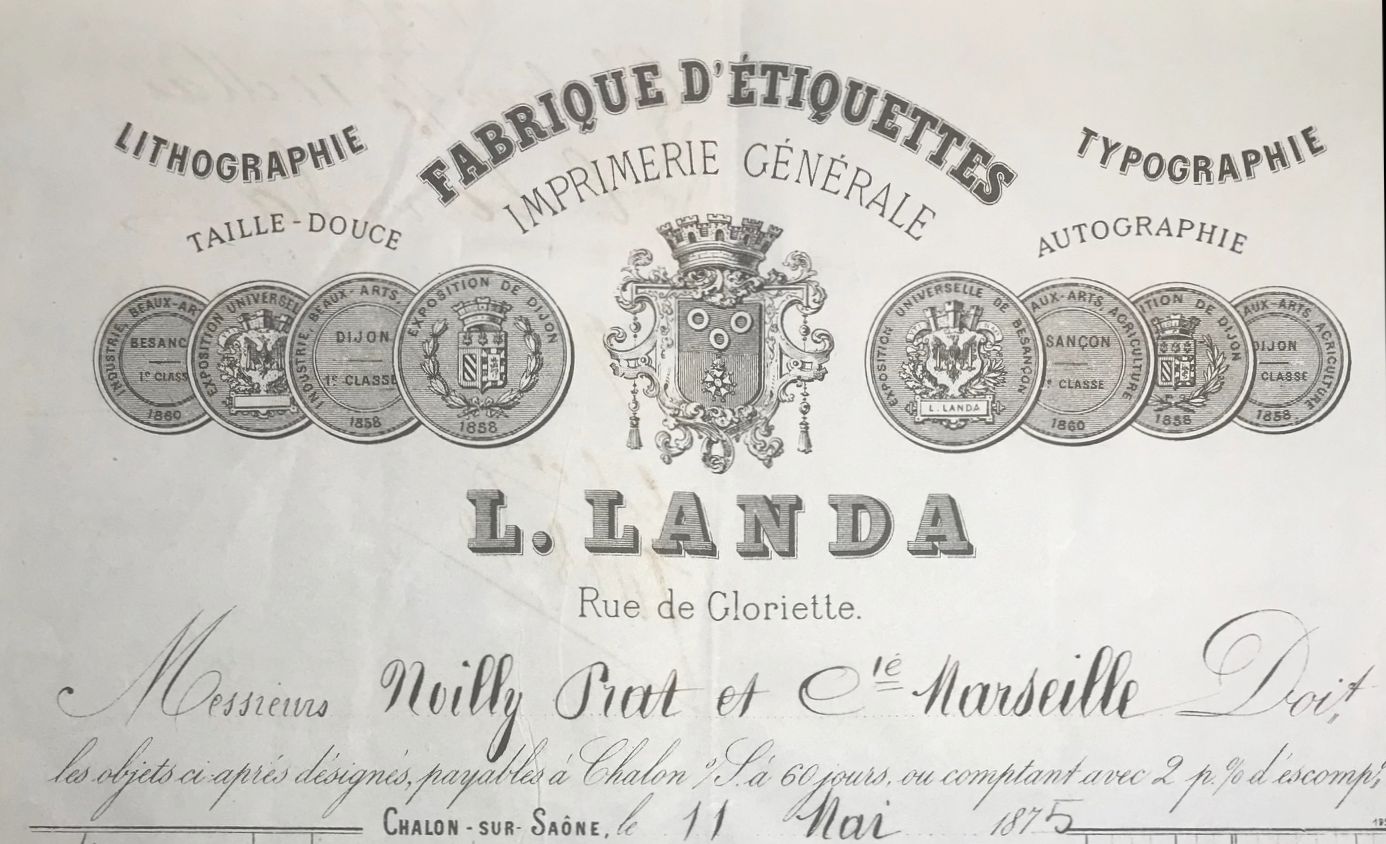 FABRIQUE D'ÉTIQUETTES
LITHOGRAPHIE
TYPOGRAPHIE
IMPRIMERIE GÉNÉRALE
TAILLE-DOUCE
AUTOGRAPHIE
INDUSTRIE, BEAUX-AR
BESANC
1e CLASS
1860
EXPOSITION UNIVERSEL
INDUSTRIE, BEAUX-ARTS,
DIJON
1e CLASSE
1858
EXPOSITION DE DIJON
1858
EXPOSITION UNIVERSELLE DE BESANÇON
L. LANDA
AUX-ARTS, AGRICULTURE
SANÇON
e CLASSE
1860
TION DE DIJON
1858
AUX-ARTS, AGRICULTURE
DIJON
CLASSE
1858
L. LANDA
Rue de Gloriette.
Messieurs Noilly Prat et Cié Marseille Doit,
les objets ci-aprés désignés, payables à Chalon s/S. à 60 jours, ou comptant avec 2 p.% d'escompte,
CHALON-SUR-SAÔNE, le 11 Mai 1875